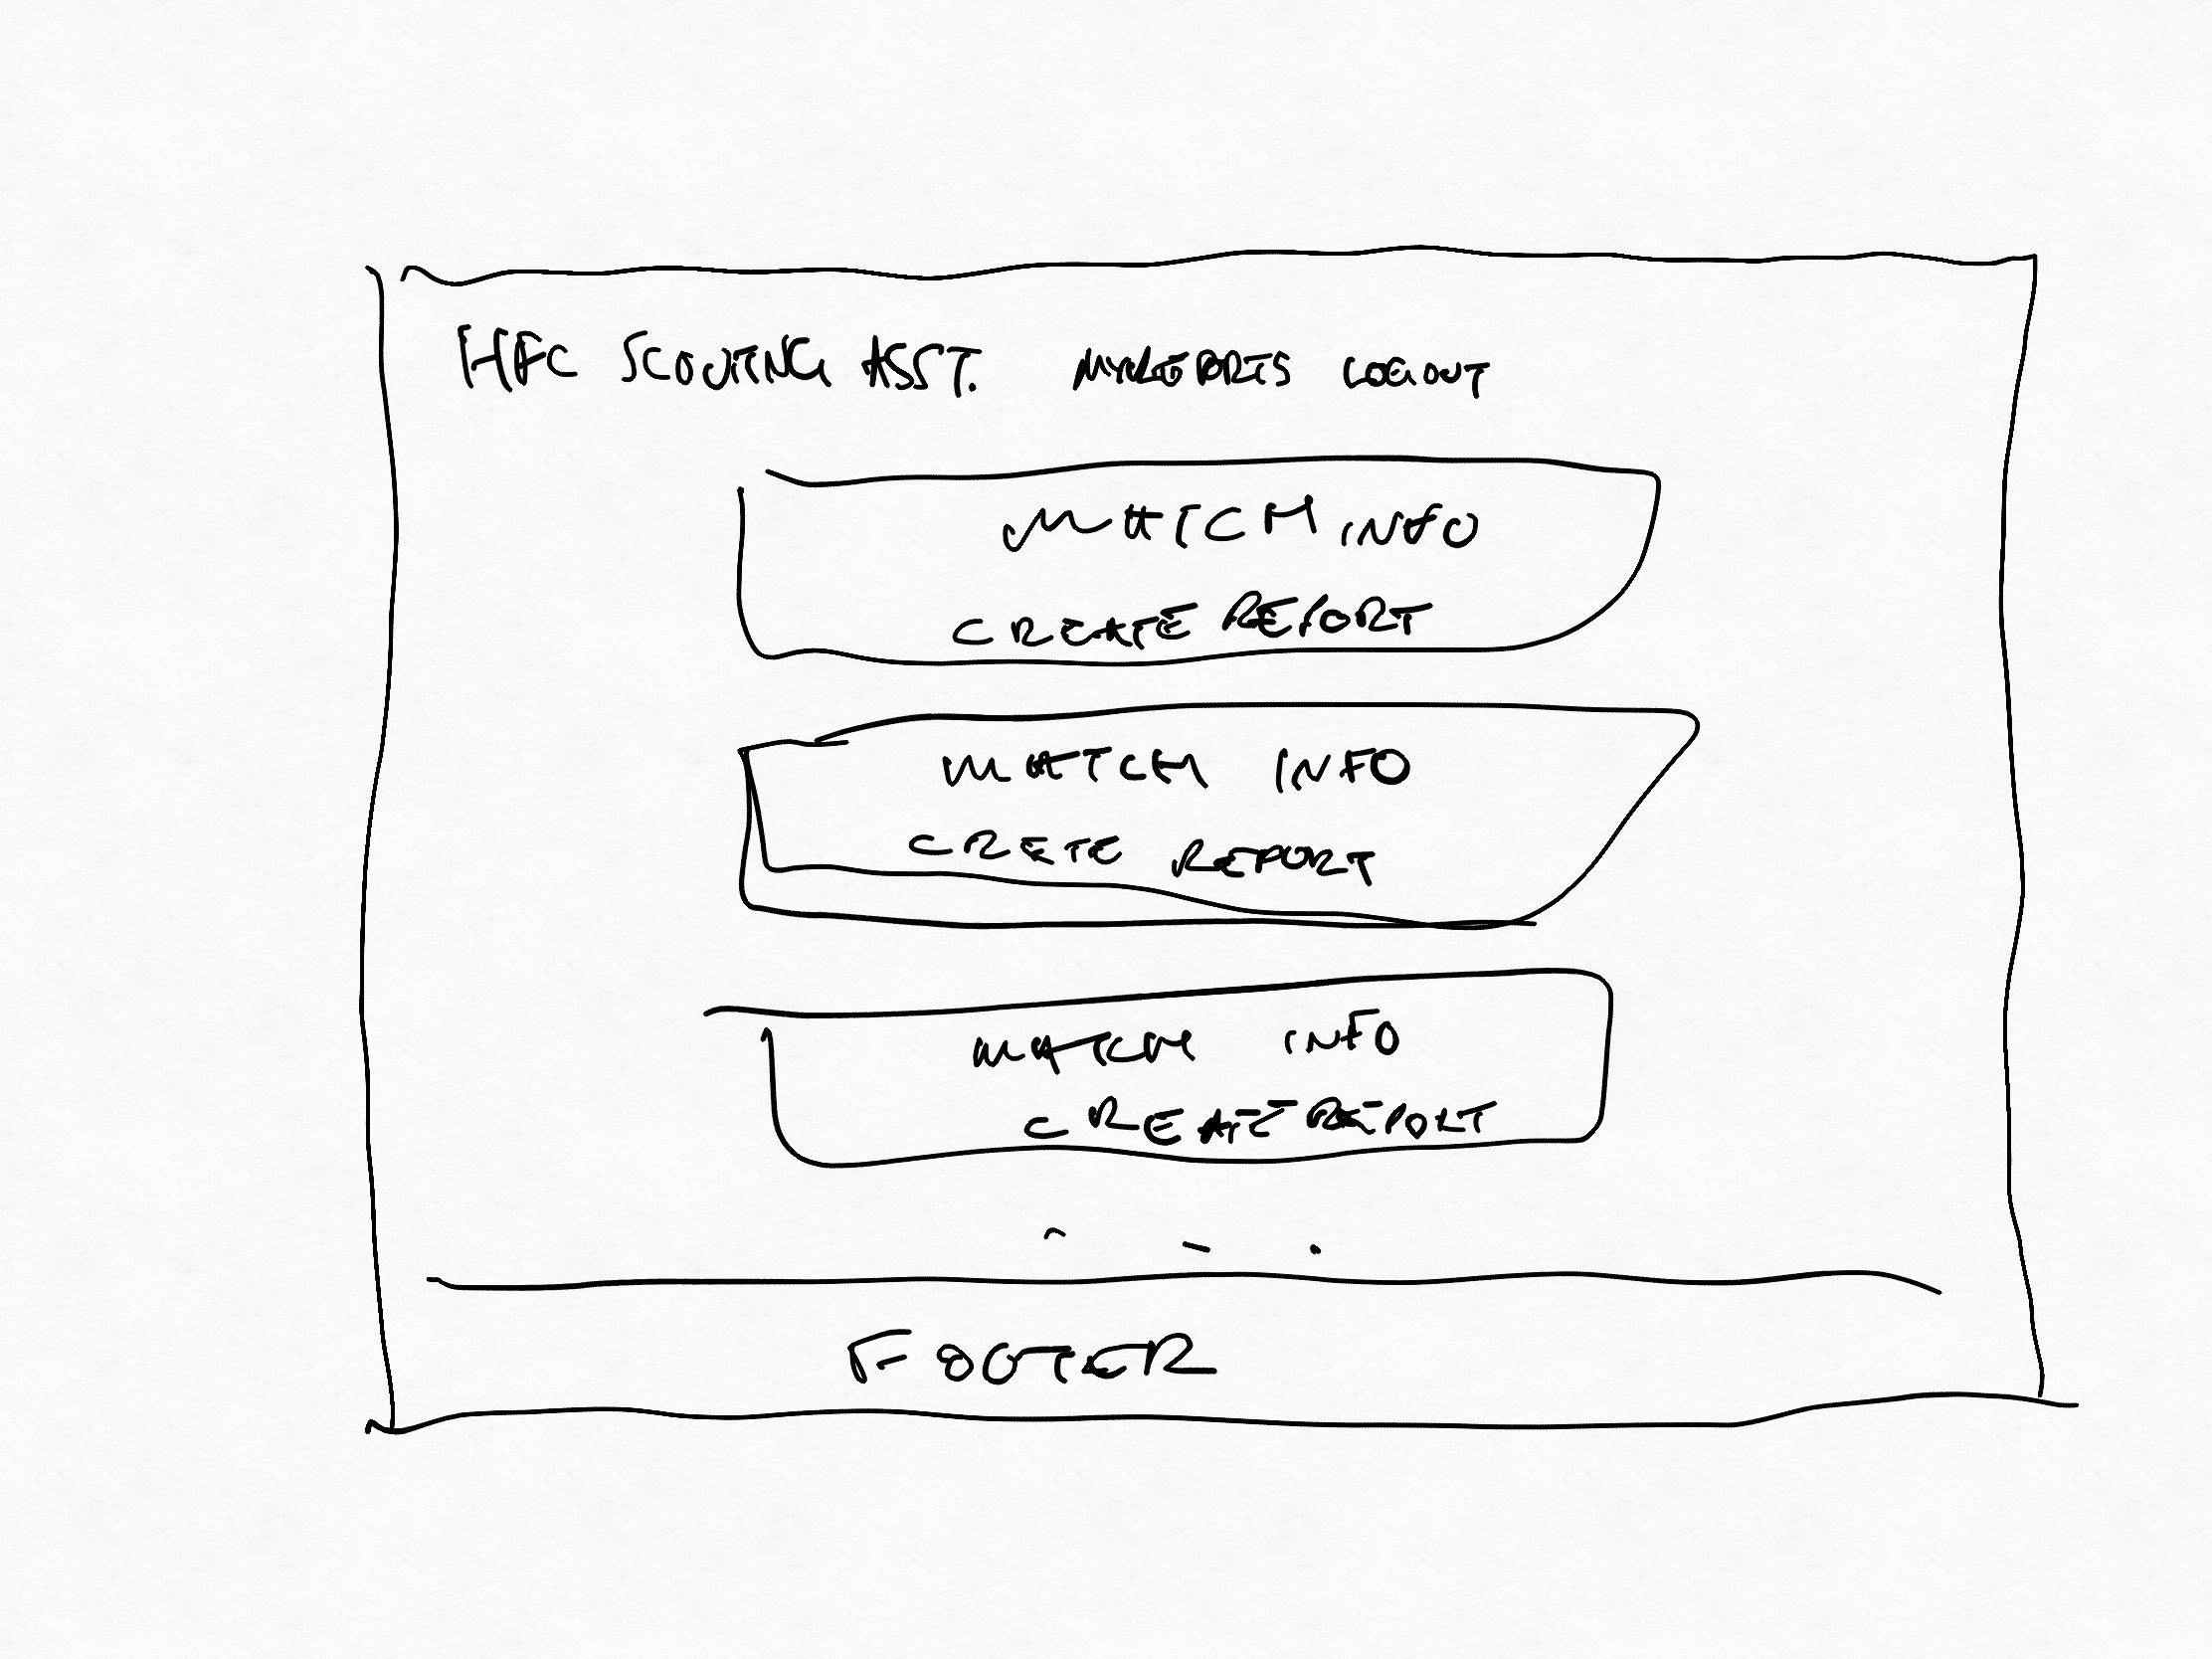 HFC SCOUTING ASST. MYREPORTS LOGOUT
MATCH INFO
CREATE REPORT
MATCH INFO
CRETE REPORT
MATCH INFO
CREATE REPORT
FOOTER